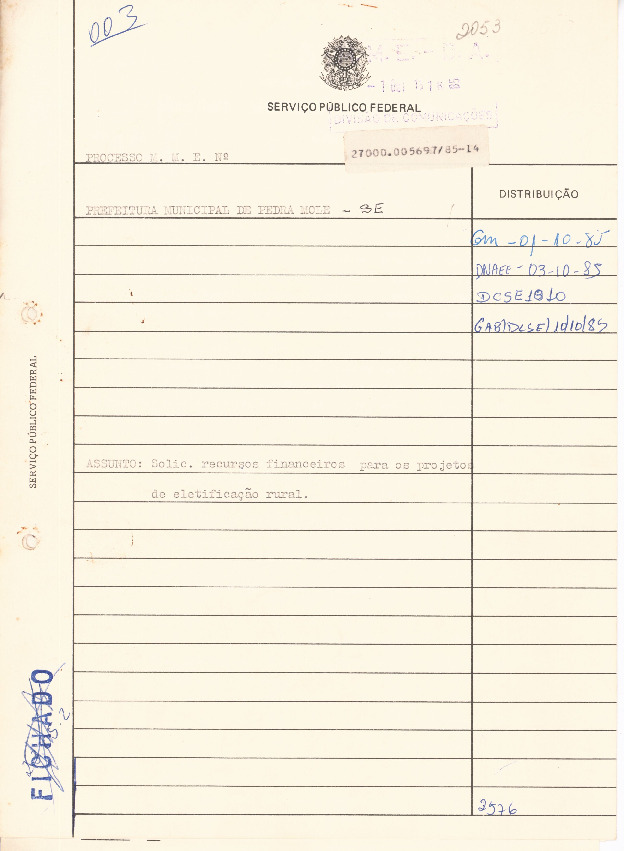 003
2053
SERVIÇO PÚBLICO FEDERAL
DIVISÃO DE COMUNICAÇÕES
27000.005697/85-14
PROCESSO M. M. E. Nº
DISTRIBUIÇÃO
PREFEITURA MUNICIPAL DE PEDRA MOLE - SE
GM - 01-10-85
DNAEE - 03-10-85
DCSE
GAB/DCSE/10/10/85
SERVIÇO PÚBLICO FEDERAL
ASSUNTO: Solic. recursos financeiros para os projetos
de eletificação rural.
FICHADO
2576